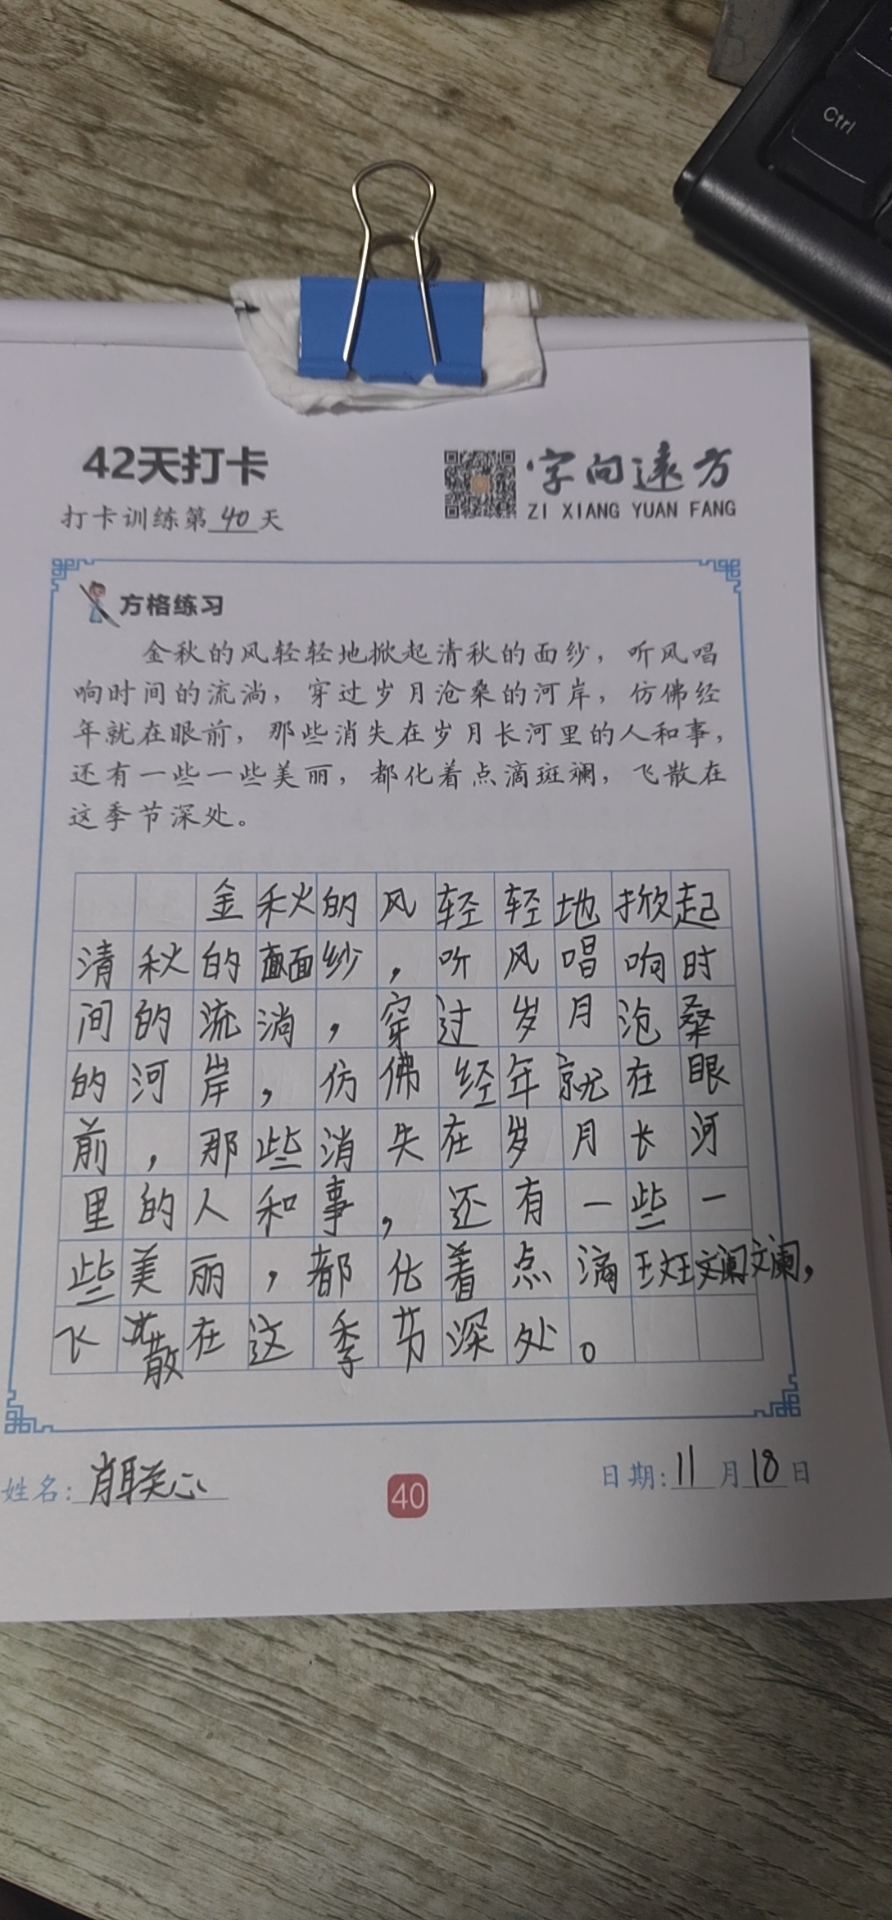 Ctrl
42天打卡
字向远方
打卡训练第40天
ZI XIANG YUAN FANG
方格练习
金秋的风轻轻地掀起清秋的面纱，听风唱
响时间的流淌，穿过岁月沧桑的河岸，仿佛经
年就在眼前，那些消失在岁月长河里的人和事，
还有一些一些美丽，都化着点滴斑斓，飞散在
这季节深处。
金秋的风轻轻地掀起
清秋的面纱，听风唱响时
间的流淌，穿过岁月沧桑
的河岸，仿佛经年就在眼
前，那些消失在岁月长河
里的人和事，还有一些一
些美丽，都化着点滴斑斓斓，
飞散在这季节深处。
姓名：肖联心
40
日期：11月18日